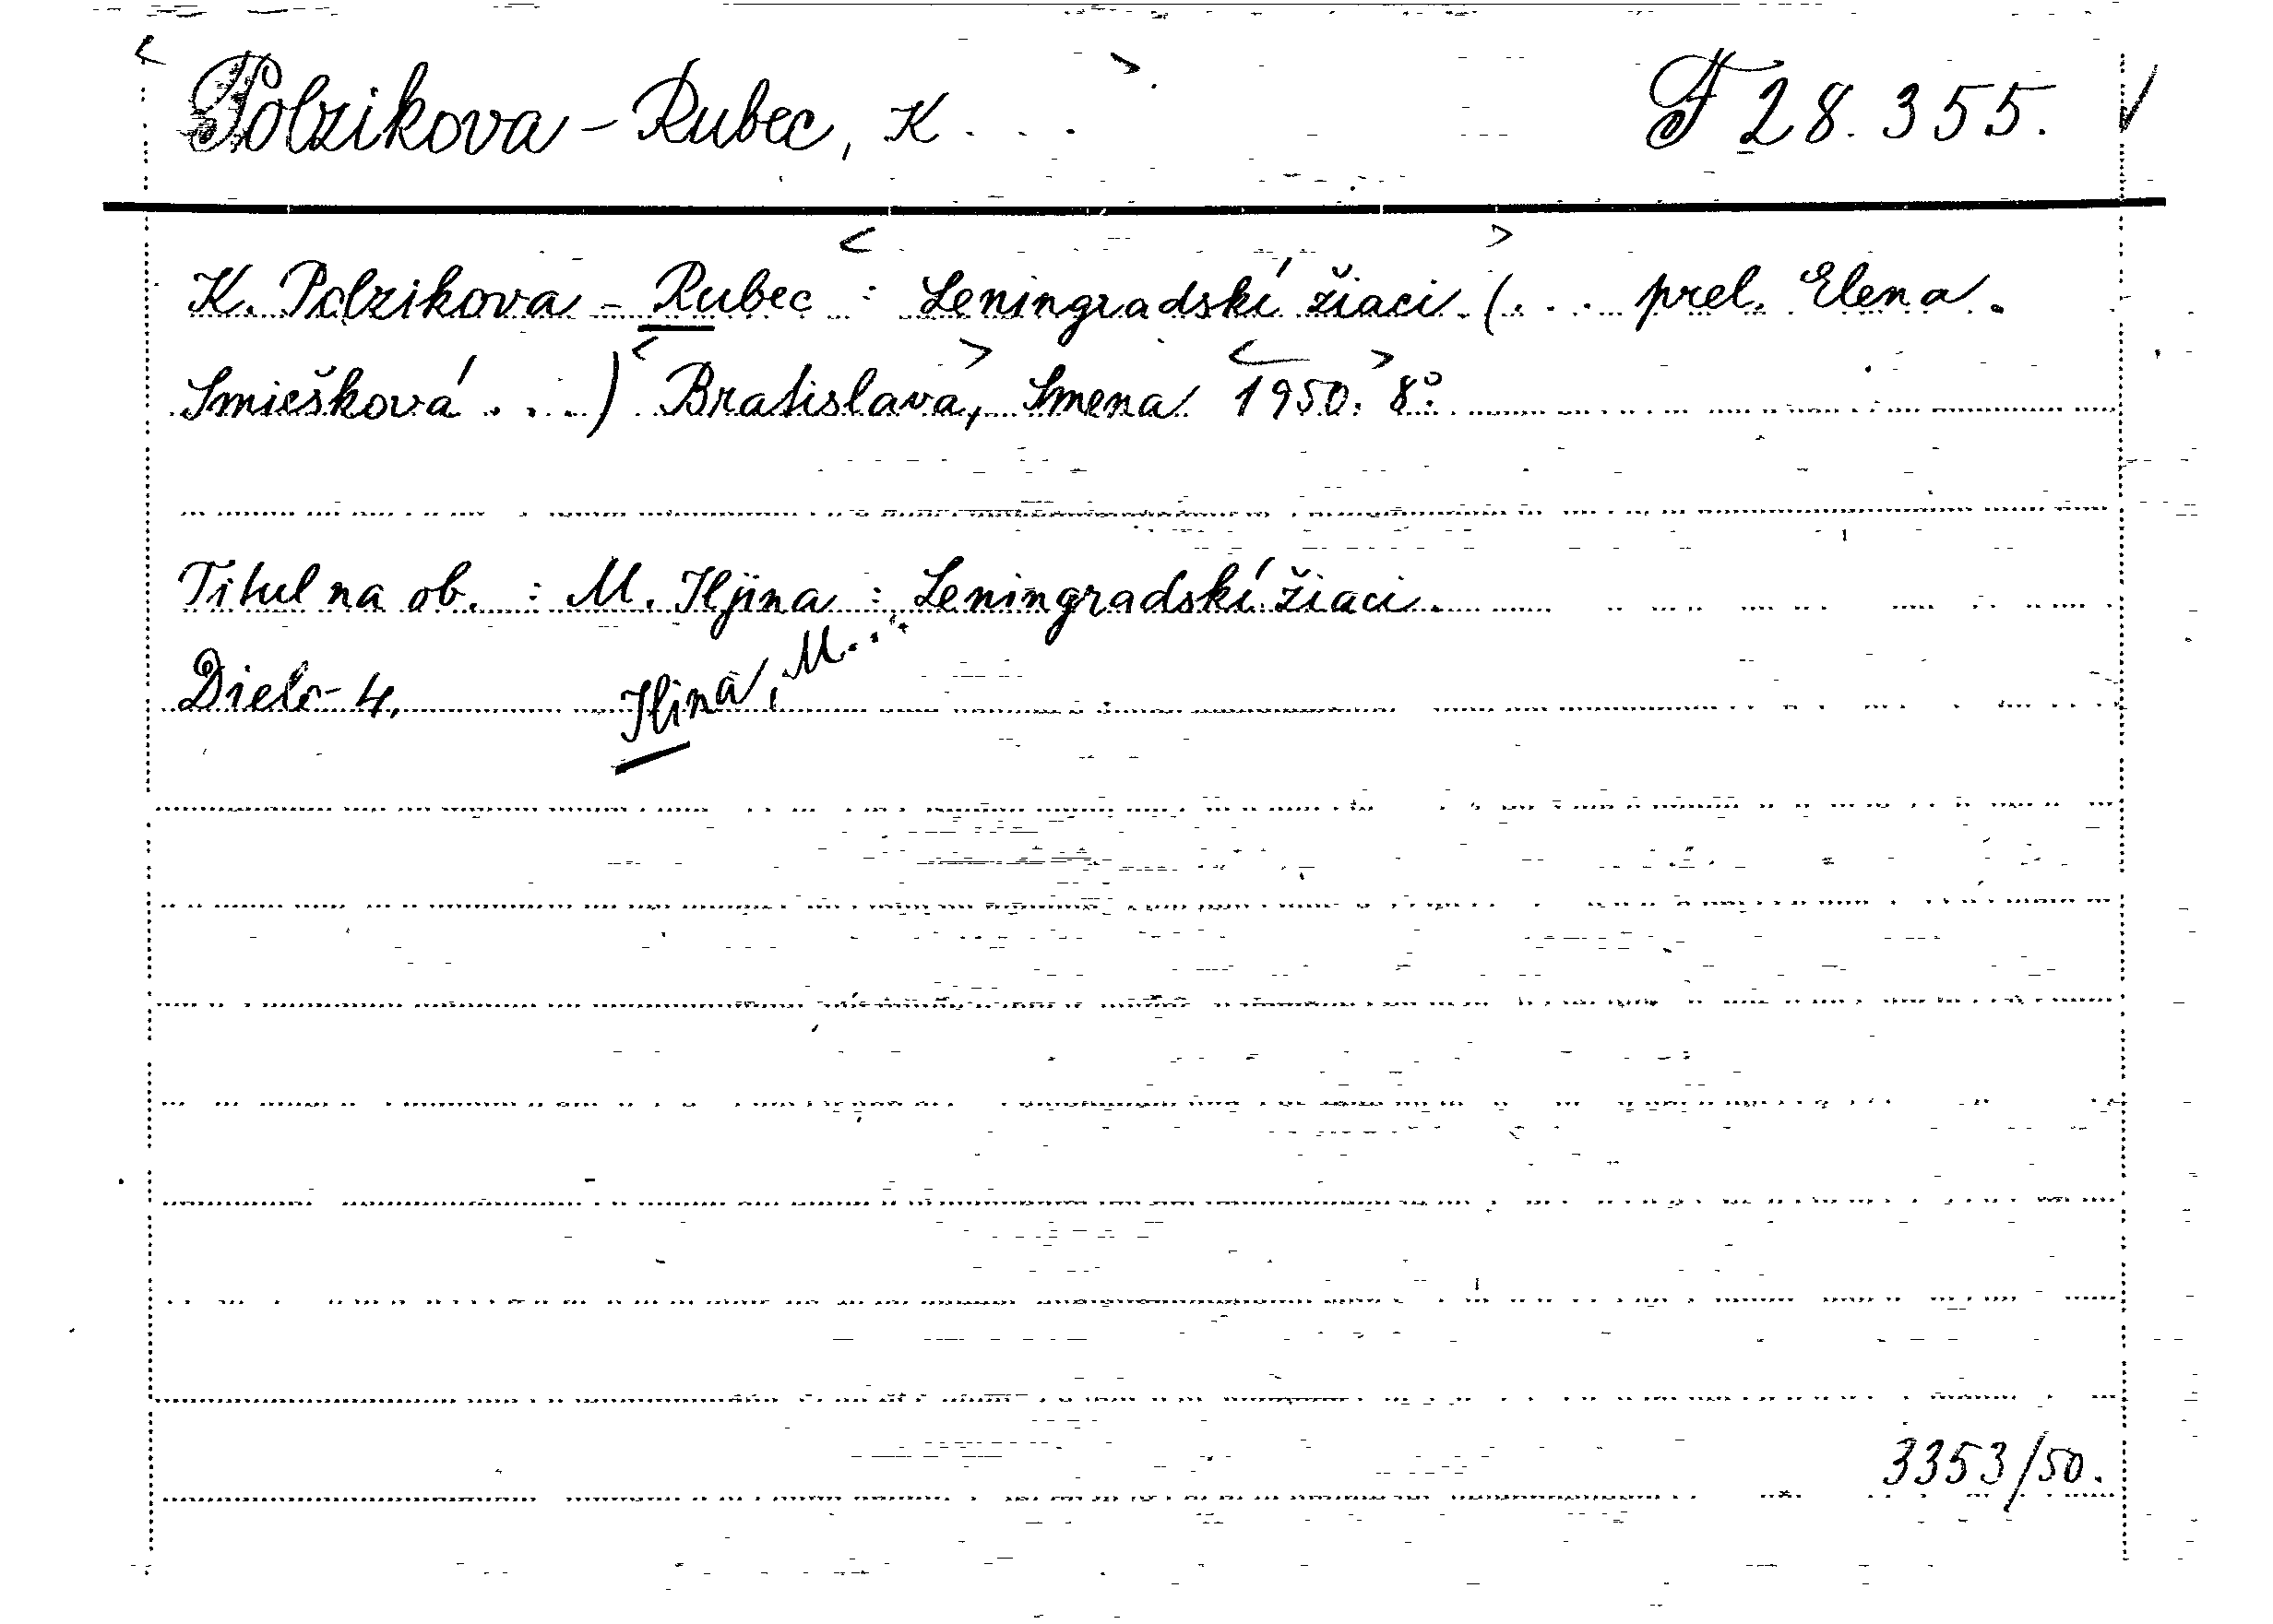 Polzikova-Rubec, K...
F 28.355.
K. Polzikova - Rubec : Leningradskí žiaci. (... prel. Elena
Smiešková ...) Bratislava, Smena 1950. 8°.
Titul na ob. : M. Iljina : Leningradskí žiaci.
Dielo-4.
Ilina, M...
3353/50.